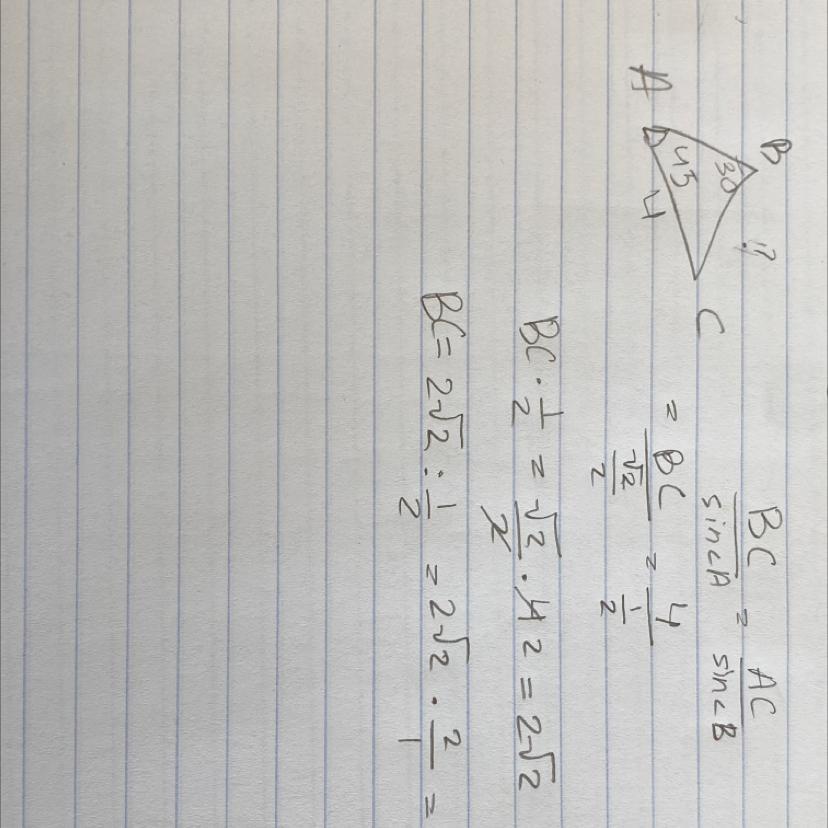 B
30
?
A
45
4
C
BC/sin∠A = AC/sin∠B
= BC/(√2/2) = 4/(1/2)
BC · 1/2 = √2/2 · 4 2 = 2√2
BC = 2√2 : 1/2 = 2√2 · 2/1 =